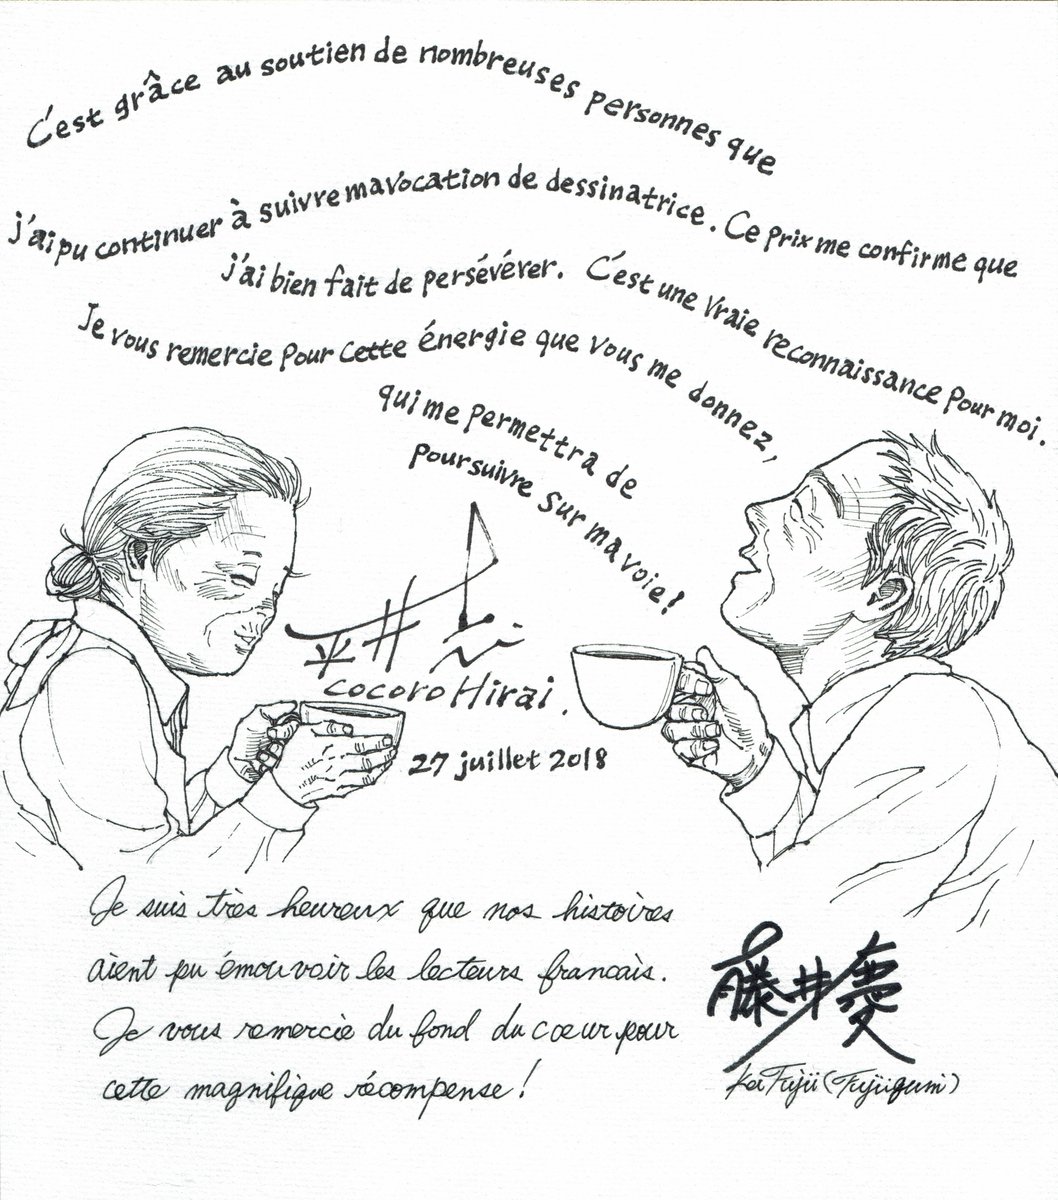 C'est grâce au soutien de nombreuses personnes que
j'ai pu continuer à suivre ma vocation de dessinatrice. Ce prix me confirme que
j'ai bien fait de persévérer. C'est une vraie reconnaissance pour moi.
Je vous remercie pour cette énergie que vous me donnez,
qui me permettra de
poursuivre sur ma voie!
平井 心
cocoro Hirai.
27 juillet 2018
Je suis très heureux que nos histoires
aient pu émouvoir les lecteurs francais.
Je vous remercie du fond du cœur pour
cette magnifique récompense!
藤井慶
Kei Fujii (Fujiigumi)